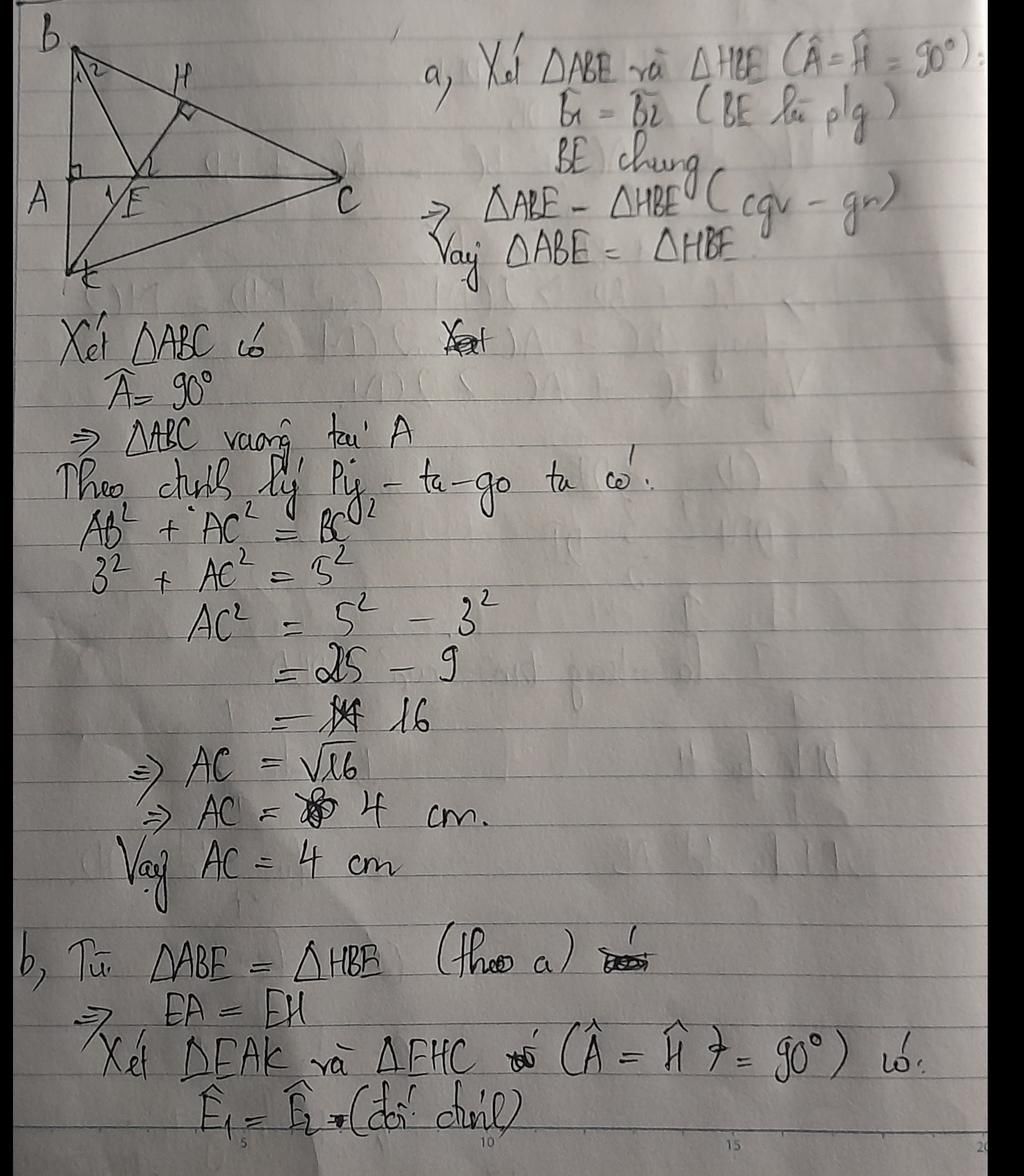 B
2
H
A
1
E
2
C
K
a, Xét ΔABE và ΔHBE (Â = Ĥ = 90°):
B̂1 = B̂2 (BE là p/g)
BE chung
⇒ ΔABE = ΔHBE (cgv - gn)
Vậy ΔABE = ΔHBE
Xét ΔABC có
Â = 90°
⇒ ΔABC vuông tại A
Theo định lý Py-ta-go ta có:
AB² + AC² = BC²
3² + AC² = 5²
AC² = 5² - 3²
= 25 - 9
= 16
⇒ AC = √16
⇒ AC = 4 cm.
Vậy AC = 4 cm
b, Từ ΔABE = ΔHBE (theo a)
⇒ EA = EH
Xét ΔEAK và ΔEHC (Â = Ĥ = 90°) có:
Ê1 = Ê2 (đối đỉnh)
5 10 15 20